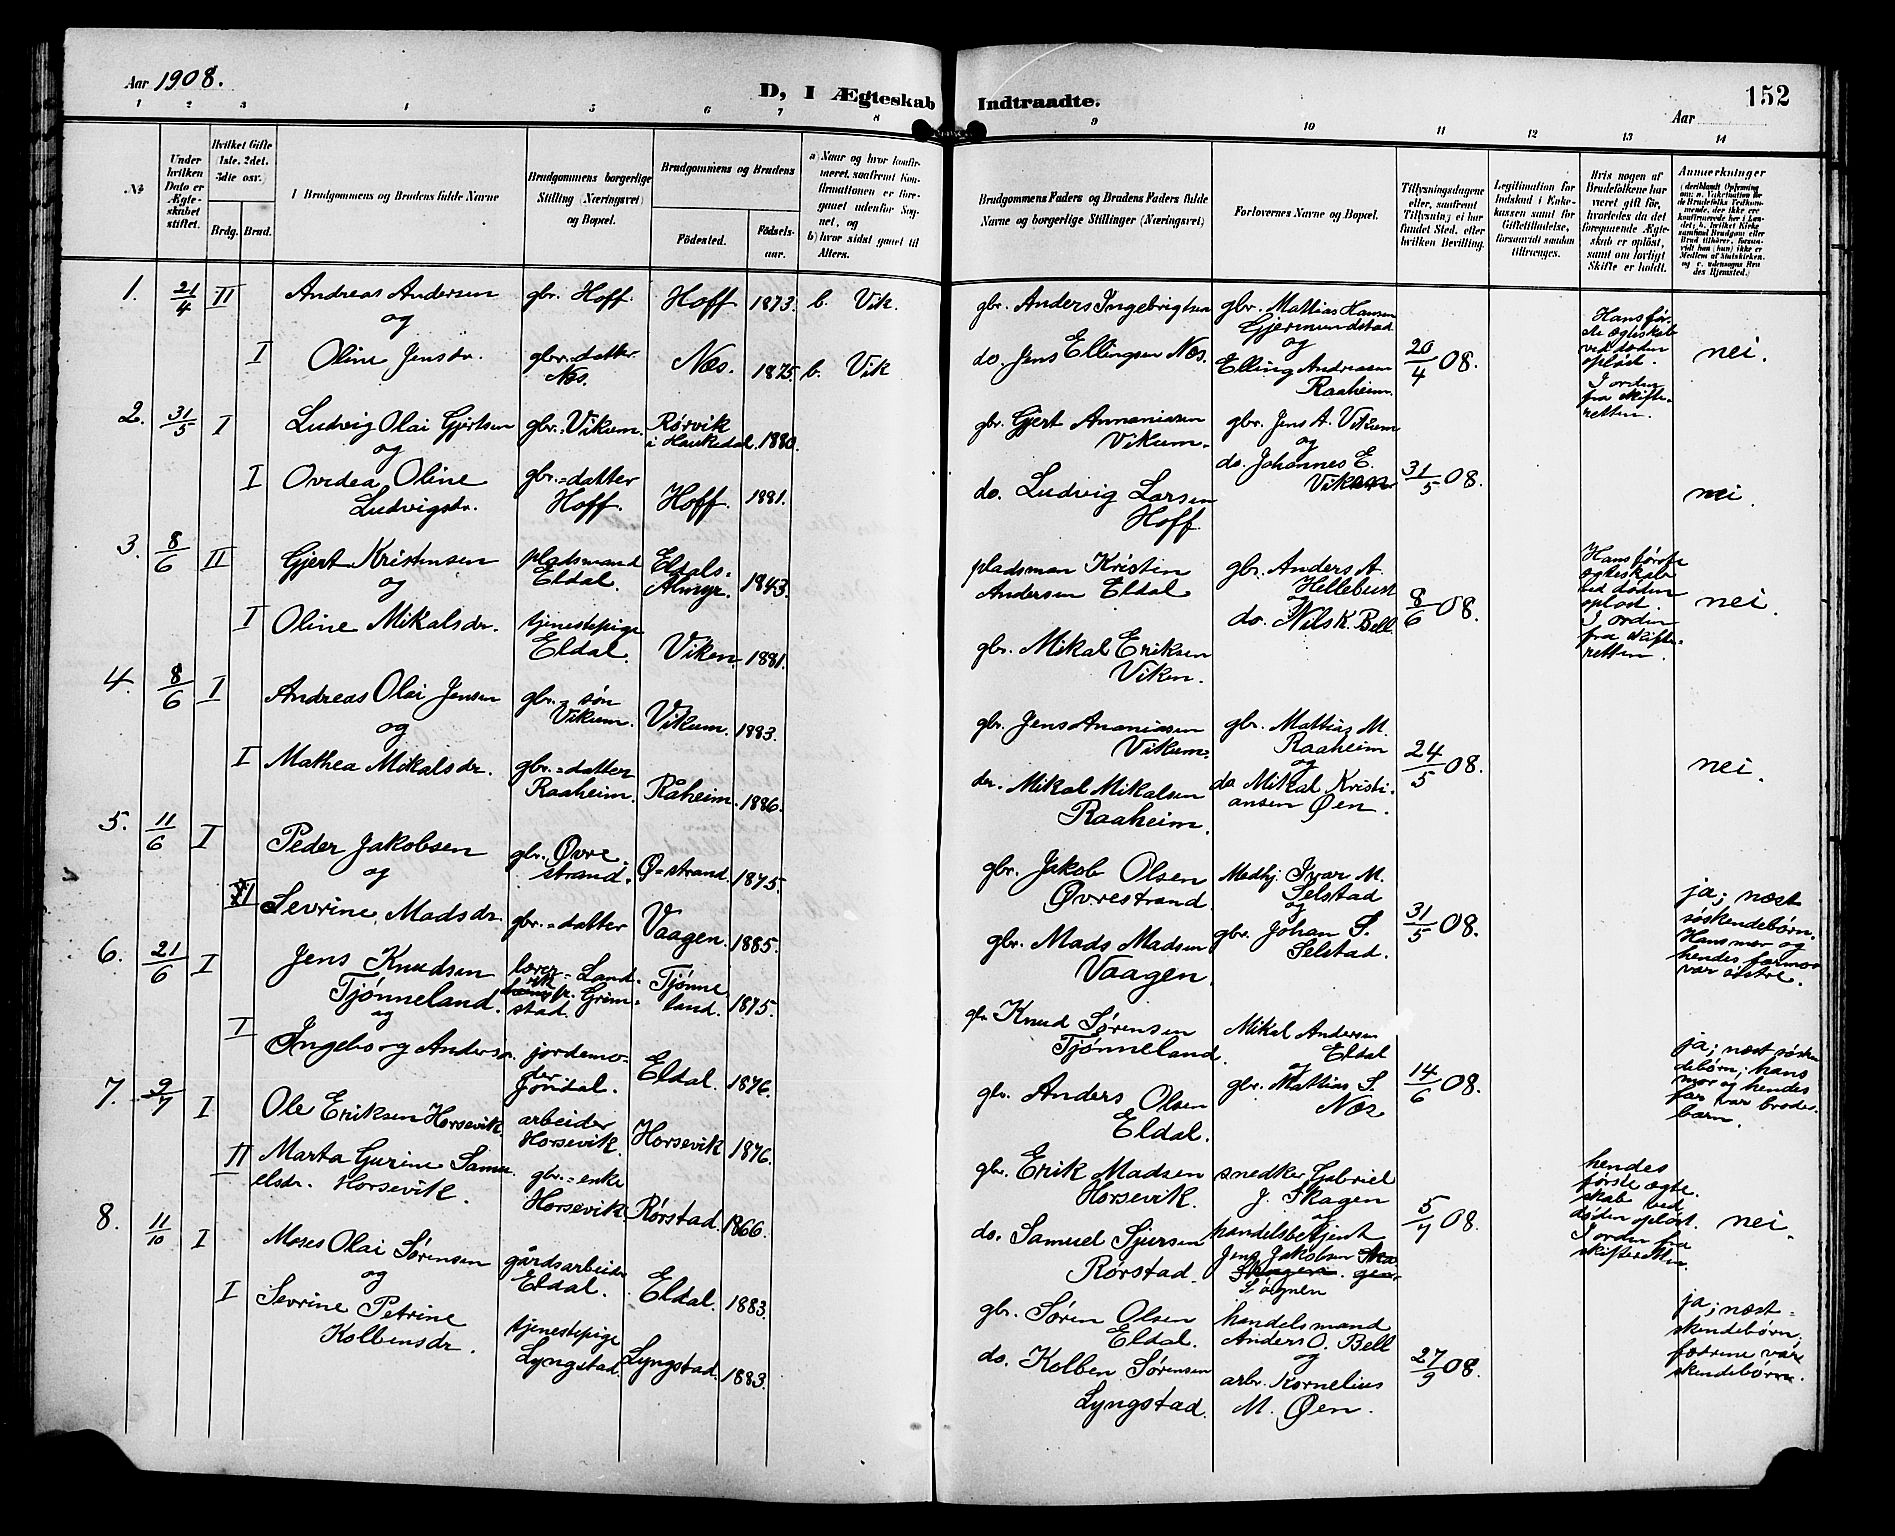 Aar 1908.
D, I Ægteskab Indtraadte.
152
Aar
1 2 3 4 5 6 7 8 9 10 11 12 13 14
№
Under hvilken Dato er Ægteskabet stiftet.
Hvilket Gifte (1ste, 2det, 3die osv.)
Brdg. Brud.
I Brudgommens og Brudens fulde Navne
Brudgommens borgerlige Stilling (Næringsvei) og Bopæl.
Brudgommens og Brudens
Fødested.
Fødselsaar.
a) Naar og hvor konfirmeret, saafremt Konfirmationen er foregaaet udenfor Sognet, og
b) hvor sidst gaaet til Alters.
Brudgommens Faders og Brudens Faders fulde Navne og borgerlige Stillinger (Næringsvei)
Forlovernes Navne og Bopæl.
Tillysningsdagene eller, saafremt Tillysning ei har fundet Sted, efter hvilken Bevilling.
Legitimation for Indskud i Enkekassen samt for Giftetilladelse, forsaavidt saadan tiltrænges.
Hvis nogen af Brudefolkene har været gift før, hvorledes da det foregaaende Ægteskab er opløst, samt om lovligt Skifte er holdt.
Anmærkninger
1. 21/4 II Andreas Andersen gbr. Hoff. Hoff. 1873. b. Vik.
og
I Oline Jensdr. gbr.=datter Næs. Næs. 1875. b. Vik
gbr. Anders Ingebrigtsen
do. Jens Ellingsen Næs.
gbr. Mattias Hansen
Gjermundstad
og
Elling Andreasen
Raaheim.
20/4 08.
Hans før-
ste ægteskab
ved døden
opløst.
I orden
fra skifte-
retten.
nei.
2. 31/5 I Ludvig Olai Gjertsen gbr. Vikum. Rørvik i Haukedal. 1880.
og
I Ovidea Oline
Ludvigsdr. gbr.=datter Hoff. Hoff. 1881.
gbr. Gjert Annaniassen
Vikum.
do. Ludvig Larsen
Hoff.
gbr. Jens A. Vikum
og
do. Johannes E.
Viken
31/5 08.
nei.
3. 8/6 II Gjert Kristensen pladsmand Eldal. Eldals- Almyr. 1843.
og
I Oline Mikalsdr. tjenestepige Eldal. Viken. 1881.
pladsman Kristen
Andersen Eldal
gbr. Mikal Eriksen
Viken.
gbr. Anders A.
Hellebust
og
do. Nils K. Bell.
8/6 08.
Hans første
ægteskab
ved døden
opløst.
I orden
fra skifte-
retten.
nei.
4. 8/6 I Andreas Olai Jensen gbr. søn Vikum. Vikum. 1883.
og
I Mathea Mikalsdr. gbr.=datter Raaheim. Råheim. 1886.
gbr. Jens Ananiassen
Vikum.
do. Mikal Mikalsen
Raaheim.
gbr. Mattias M.
Raaheim
og
do Mikal Kristi-
ansen Øen.
24/5 08.
nei.
5. 11/6 I Peder Jakobsen gbr. Øvre- strand. Ø=strand. 1875.
og
I Sevrine Madsdr. gbr.=datter Vaagen. 1885.
gbr. Jakob Olsen
Øvrestrand.
gbr. Mads Madsen
Vaagen.
Medhj. Ivar M.
Selstad
og
gbr. Johan S.
Selstad.
31/5 08.
ja; næst
søskendebørn.
Hans mor og
hendes farmor
var søstre.
6. 21/6 I Jens Knudsen
Tjønneland. lærer=Land-
vik pr. Grim-
stad. Tjønne- land. 1875.
og
I Ingeborg Andersdr. jordemo-
der Jondal. Eldal. 1876.
gbr Knud Sørensen
Tjønneland.
gbr. Anders Olsen
Eldal.
Mikal Andersen
Eldal
og
gbr. Mattias S.
Næs
14/6 08.
ja; næst søsken
debørn; hans
mor og hendes
far var brodes-
barn.
7. 9/7 I Ole Eriksen Horsevik. arbeider Horsevik. Horsevik 1876.
II Marta Gurine Samu-
elsdr. Horsevik. gbr.=enke Horsevik. Rørstad. 1866.
gbr. Erik Madsen
Horsevik.
do. Samuel Sjursen
Rørstad.
snedker Gabriel
J. Skagen
og
handelsbetjent
Jens Jakobsen
Søgnen
5/7 08.
hendes
første ægte-
skab ved
døden opløst.
I orden fra
skifteretten.
nei.
8. 11/10 I Moses Olai Sørensen gårdsarbeider Eldal. Eldal. 1883.
og
I Sevrine Petrine
Kolbensdr. tjenestepige Lyngstad. Lyngstad. 1883.
gbr. Søren Olsen
Eldal.
do. Kolben Sørensen
Lyngstad.
handelsmand
Anders O. Bell
og
arbr. Kornelius
M. Øen.
27/9 08.
ja; næst-
skendebørn;
fædrene var
skendebørn.